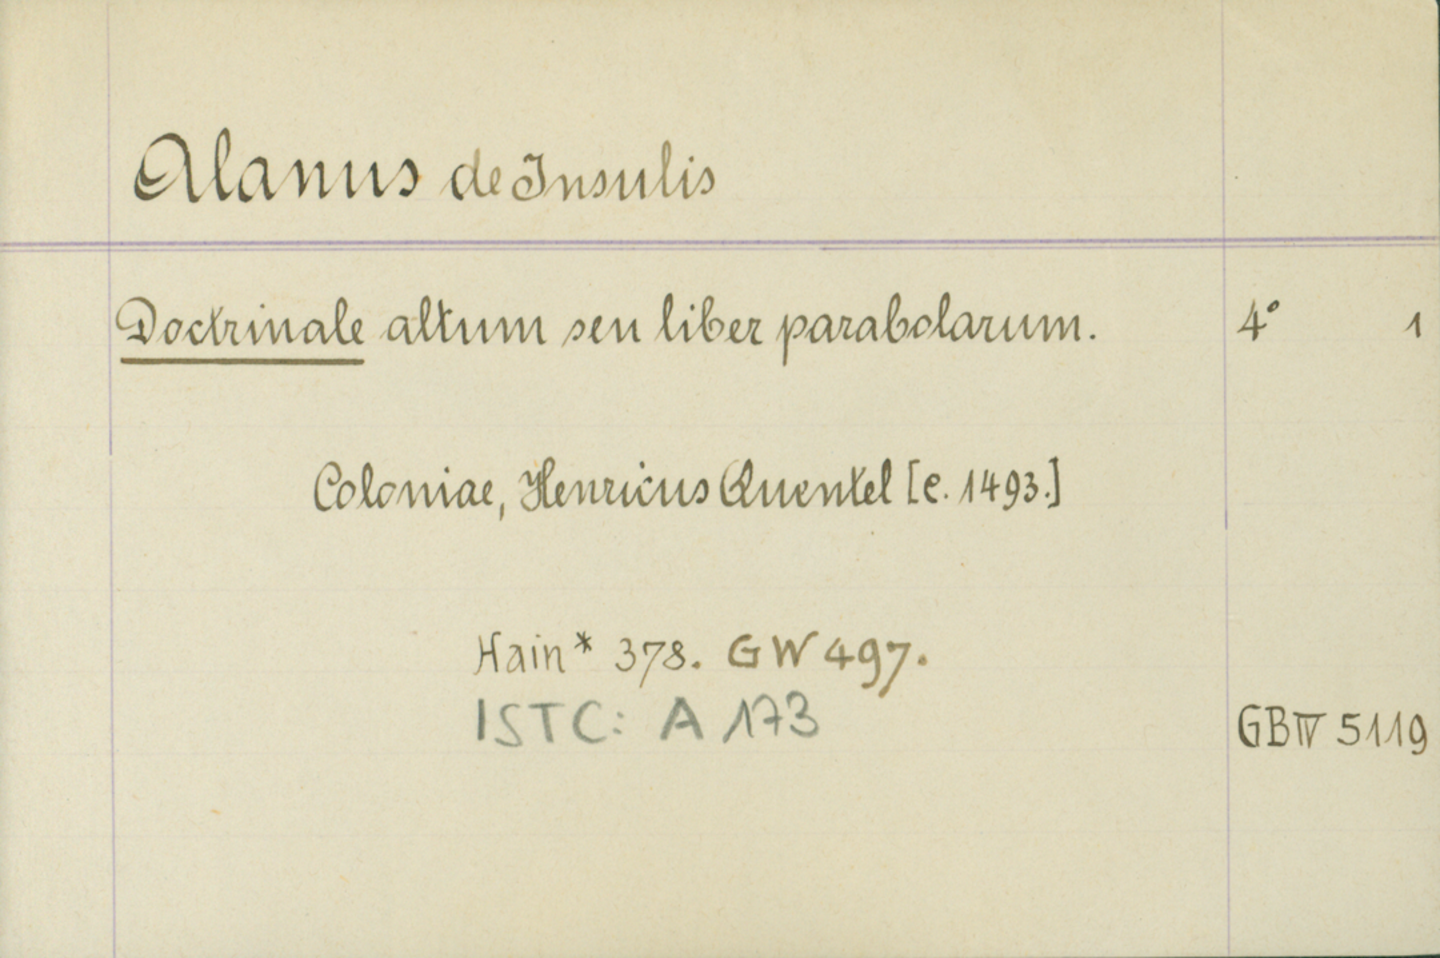 Alanus de Insulis
Doctrinale altum seu liber parabolarum. 4° 1
Coloniae, Henricus Quentel [c. 1493.]
Hain* 378. GW 497.
ISTC: A 173
GB IV 5119